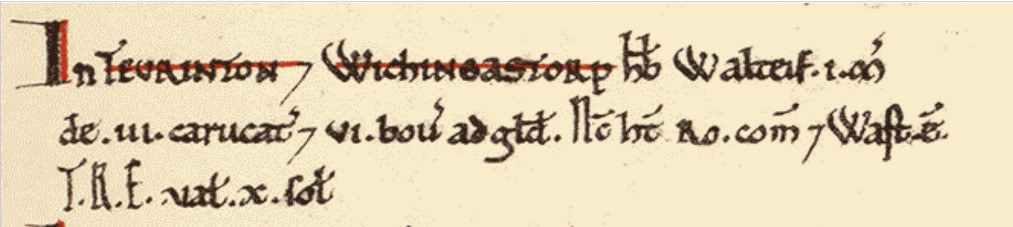 In Teurinton ⁊ Wichingastorp ħb Walteif .i. m̄
de .iii. carucat̄ ⁊ vi. bou̅ ad gld̄. N̄c h̄t Ro. com̄ ⁊ Wast.ē.
T.R.E. ual̄ .x. sol̄